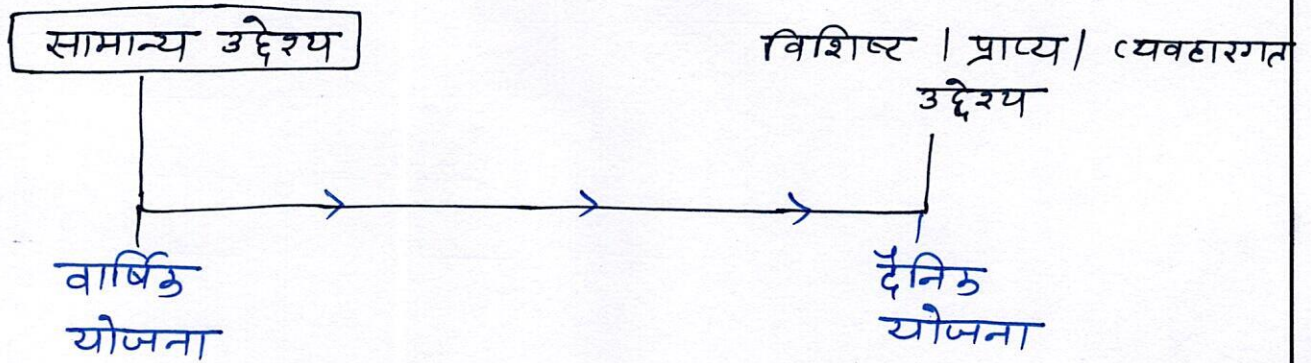 सामान्य उद्देश्य
विशिष्ट | प्राप्य | व्यवहारगत
उद्देश्य
वार्षिक
योजना
दैनिक
योजना